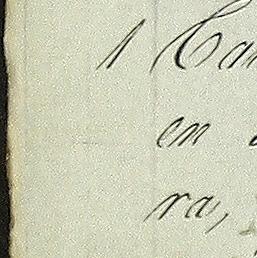 1 Ca
en
ra,